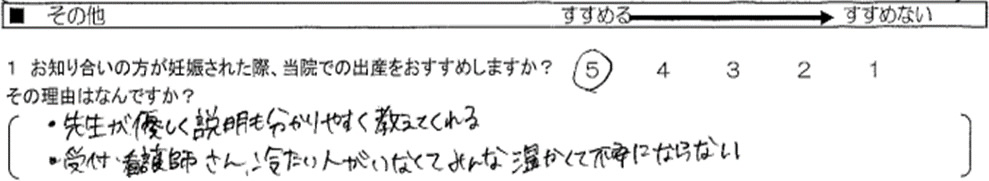 ■ その他 すすめる すすめない
1 お知り合いの方が妊娠された際、当院での出産をおすすめしますか? 5 4 3 2 1
その理由はなんですか?
・先生が優しく説明も分かりやすく教えてくれる
・受付・看護師さん、冷たい人がいなくてみんな温かくて不安にならない